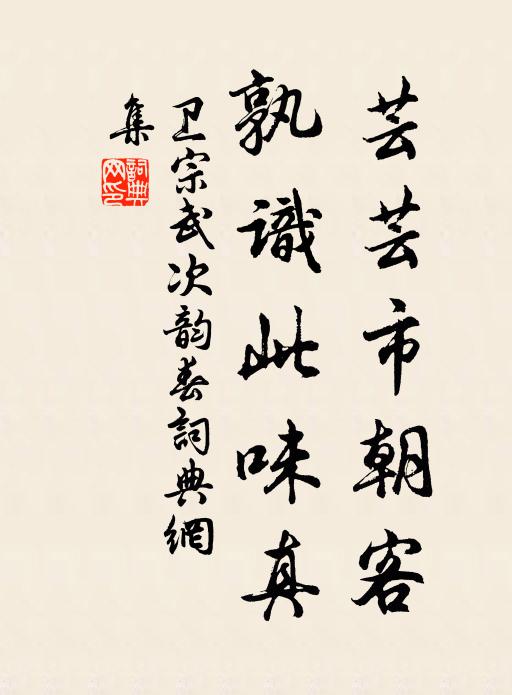 芸芸市朝客
孰識此味真
卫宗武次韵春詞典網
集
詞典
网印